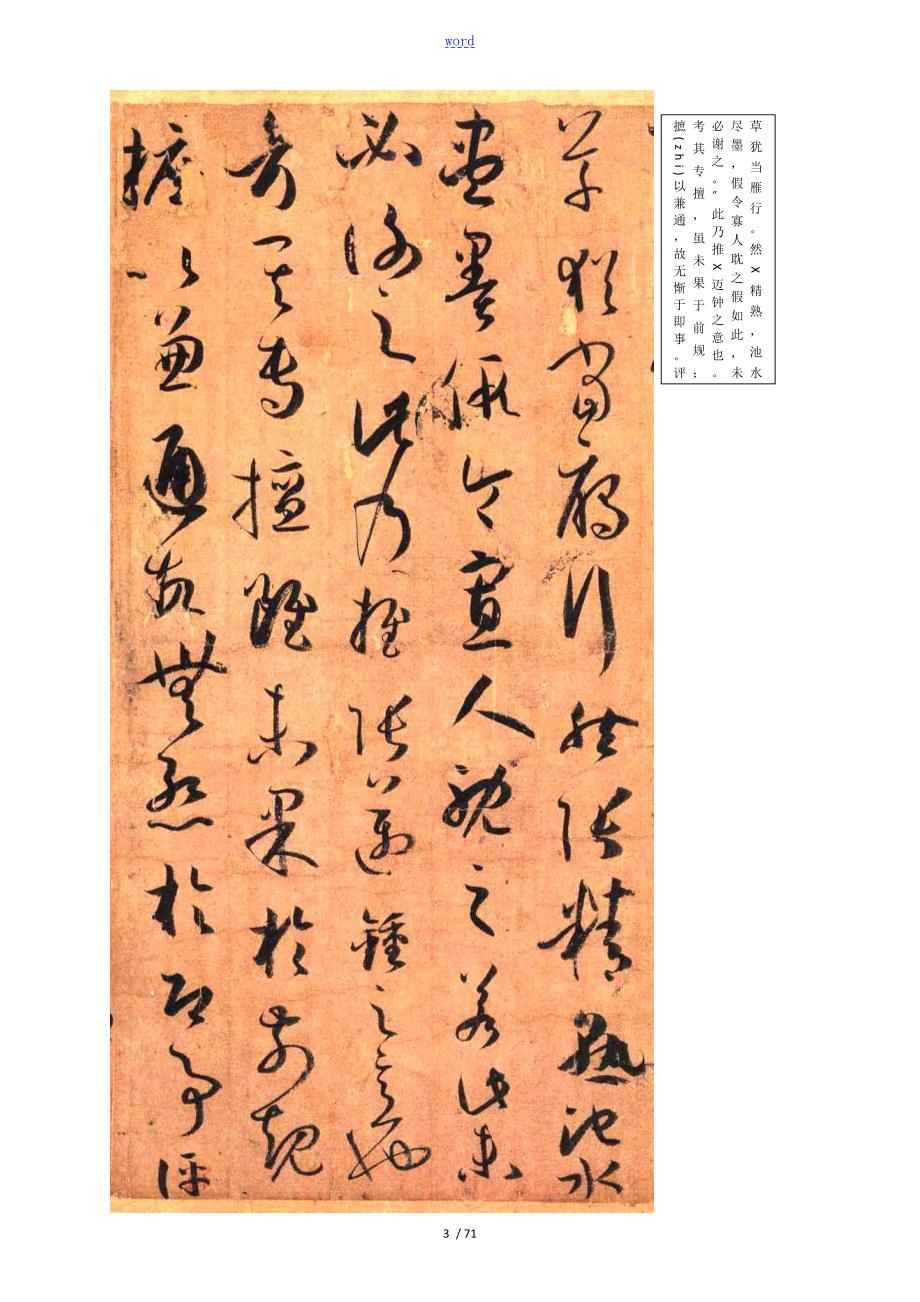 word
草犹当雁行。然X精熟，池水
尽墨，假令寡人耽之假如此，未
必谢之。”此乃推X迈钟之意也。
考其专擅，虽未果于前规；
摭(zhi)以兼通，故无惭于即事。评
草猶當鴈行然張精熟池水
盡墨假令寡人耽之若此未
必謝之此乃推張邁鍾之意也
考其專擅雖未果於前規
摭以兼通故無慚於即事評
3 / 71